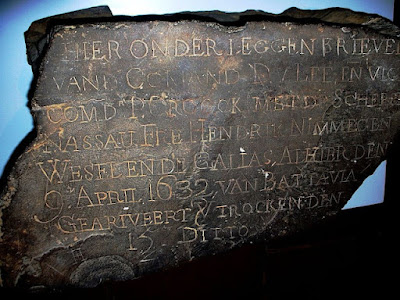 HIER ONDER LEGGEN BRIEVEN
VANN COM AND D V LEE EN VIC
COMD P CROOCK MET D SCHEPE
NASSAU FRE HENDRIC NIMMEGEN
WESFE ENDE GALIAS ALHIER DEN
9 APRIL 1632 VAN BATTAVIA
GEARIVEERT & VTROCKEN DEN
12 DITTO